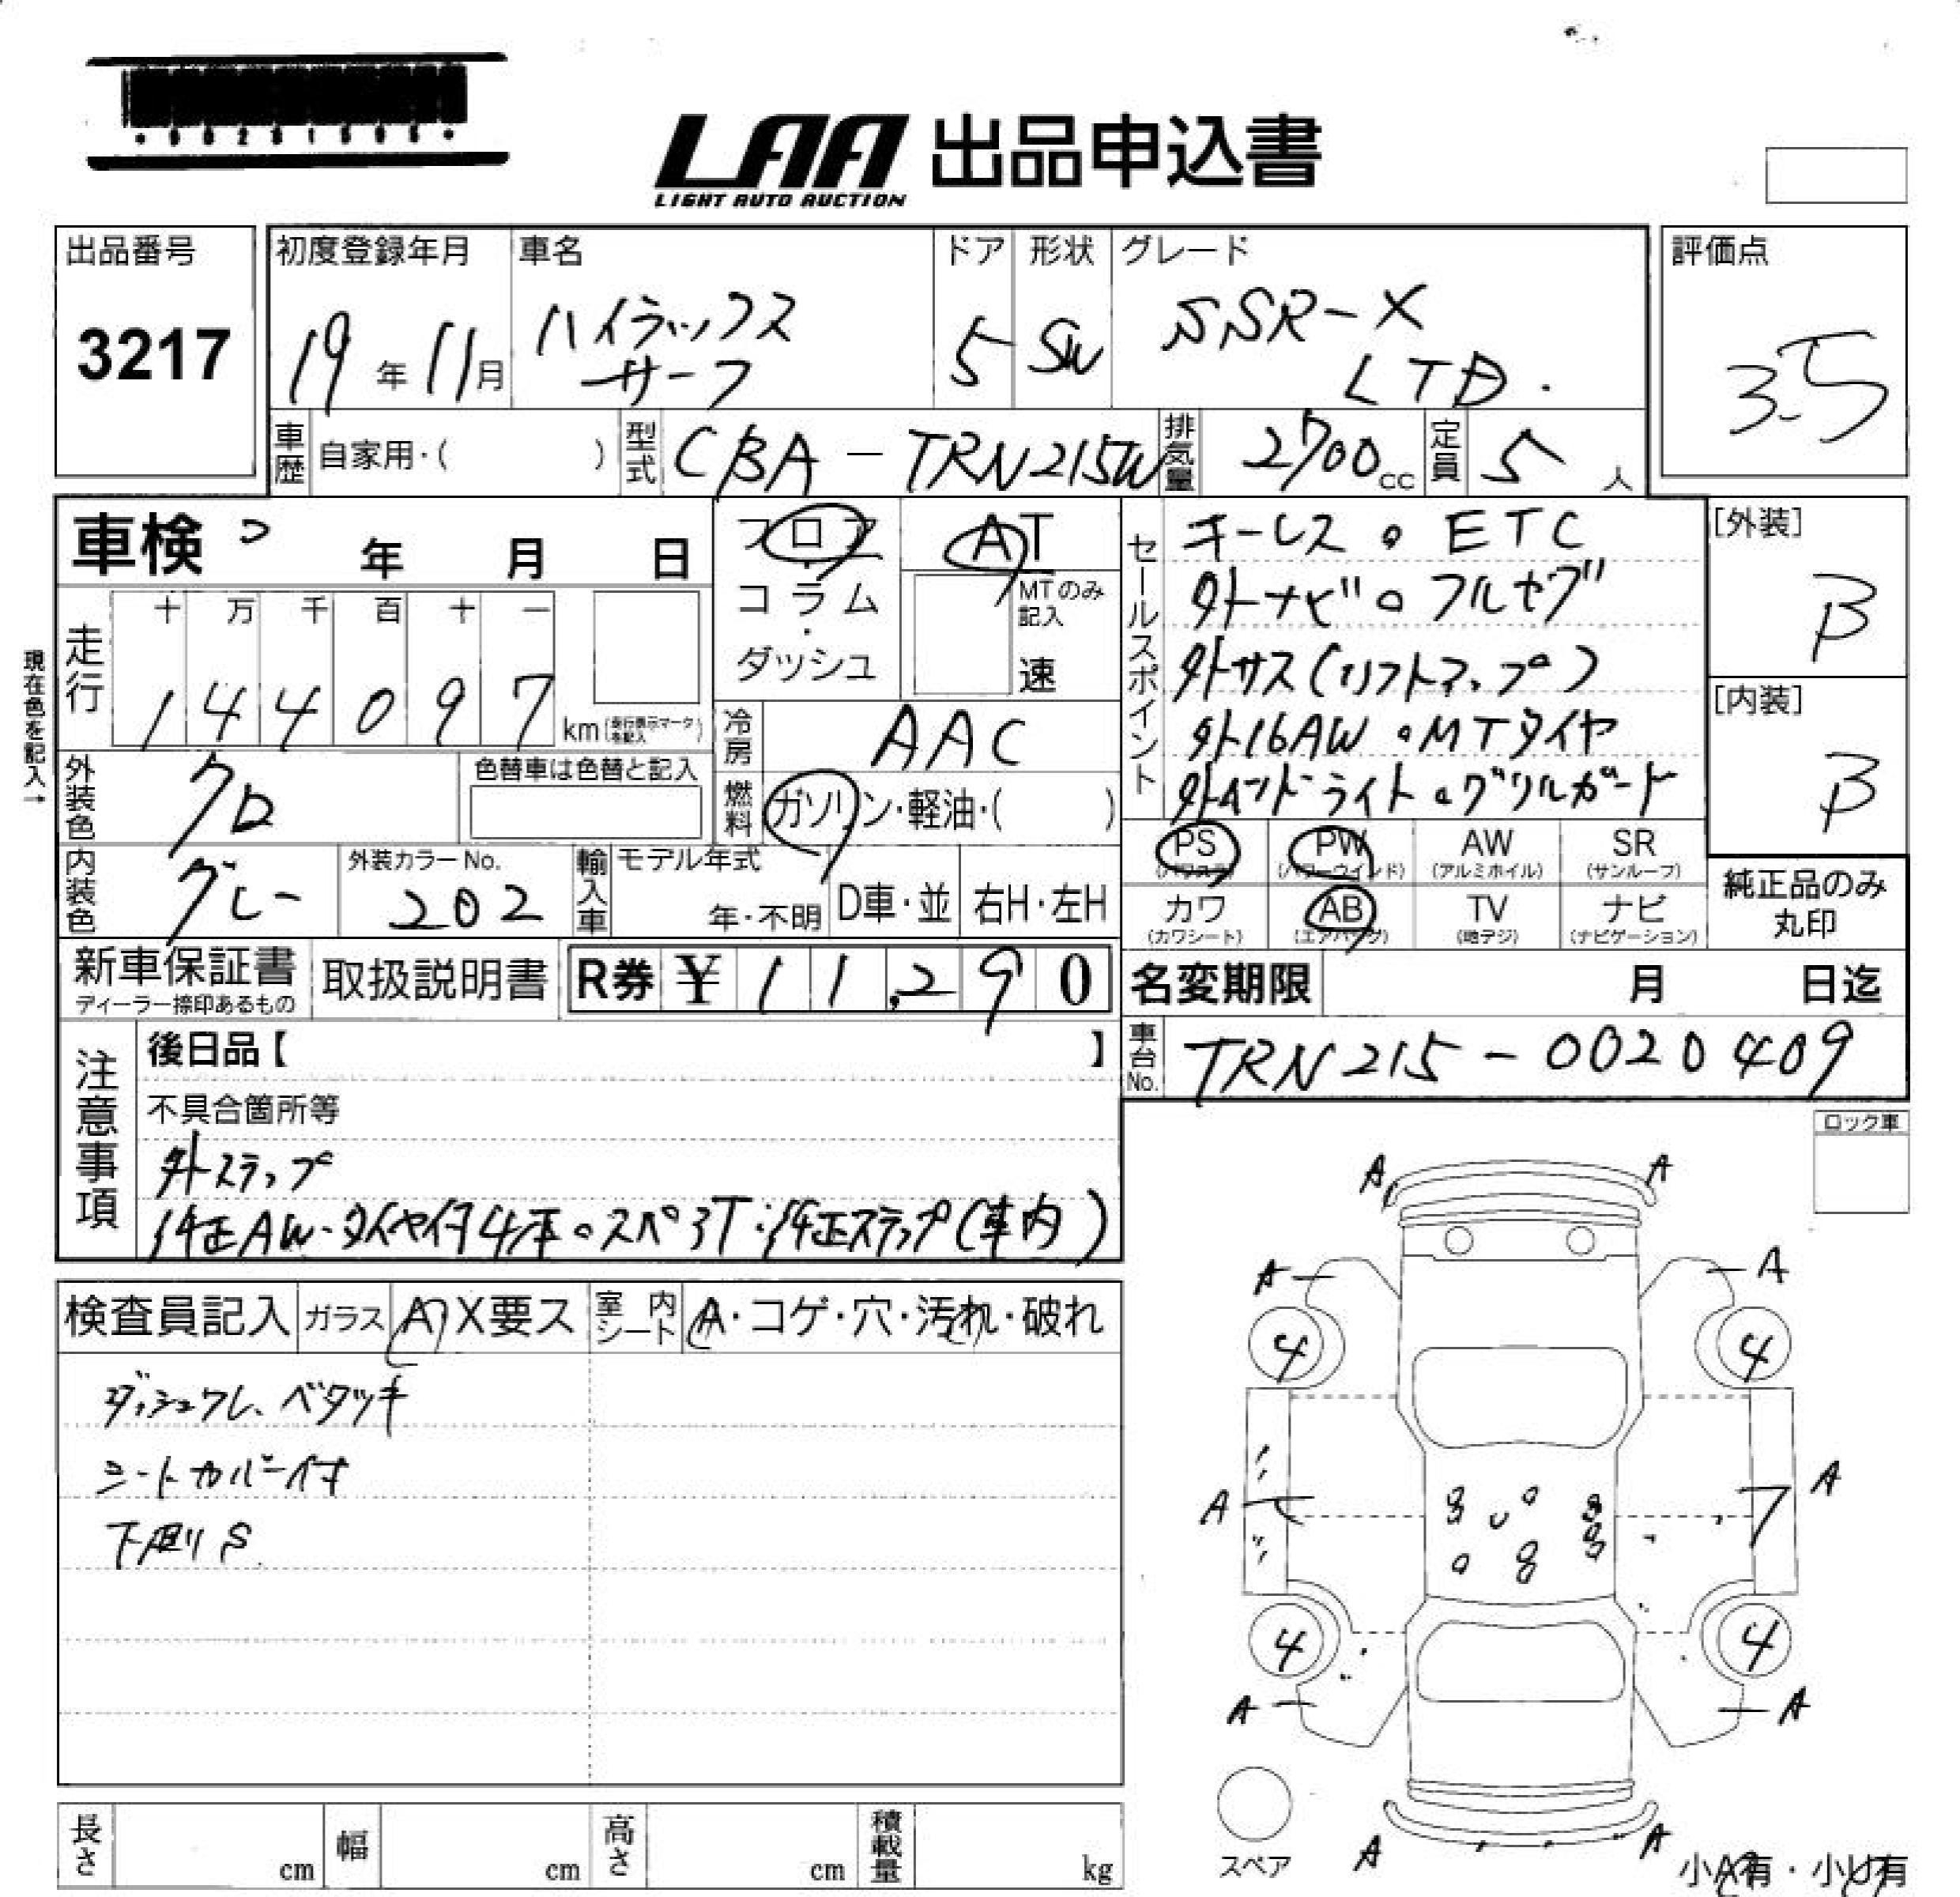 LAA 出品申込書
LIGHT AUTO AUCTION
出品番号
3217
初度登録年月
19年11月
車名
ハイラックス
サーフ
ドア
5
形状
SW
グレード
SSR-X
LTD.
評価点
3.5
車歴 自家用・( )
型式 CBA-TRN215W
排気量 2700cc
定員 5人
車検 年 月 日
現在色を記入→
走行
十 万 千 百 十 一
1 4 4 0 9 7 km
フロア
コラム
・
ダッシュ
AT
MTのみ
記入
速
冷房 AAC
燃料 ガソリン・軽油・( )
外装色 クロ
色替車は色替と記入
内装色 グレー
外装カラーNo.
202
輸入車
モデル年式
年・不明
D車・並 右H・左H
セールスポイント
キーレス。ETC
外ナビ。フルセグ
外サス(リフトアップ)
外16AW。MTタイヤ
外ライト。グリルガード
[外装]
B
[内装]
B
PS PW AW SR
(パワステ) (パワーウインド) (アルミホイル) (サンルーフ)
カワ AB TV ナビ
(カワシート) (エアバック) (地デジ) (ナビゲーション)
純正品のみ
丸印
新車保証書
ディーラー捺印あるもの
取扱説明書
R券 ¥11,290
名変期限 月 日迄
車台No. TRN215-0020409
注意事項
後日品【 】
不具合箇所等
外ステップ
純正AW・タイヤ付4本。スペアT・純正ステップ(車内)
検査員記入 ガラス A X要ス 室内シート A・コゲ・穴・汚れ・破れ
ダッシュワレ、ベタツキ
シートカバー付
下廻りS
ロック車
A A
A A
4 4
A A
4 4
A A
スペア
A A
小A有・小U有
長さ cm 幅 cm 高さ cm 積載量 kg